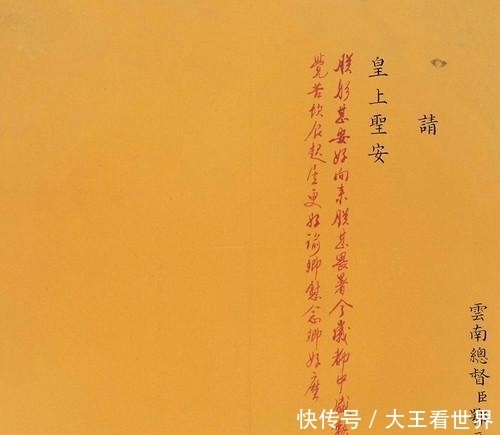 雲南總督臣鄂
請
皇上聖安
朕躬甚安好向來朕甚畏暑今歲都中盛
覺苦飲食起居更好諭卿慰念卿好麼
快传号 / 大王看世界